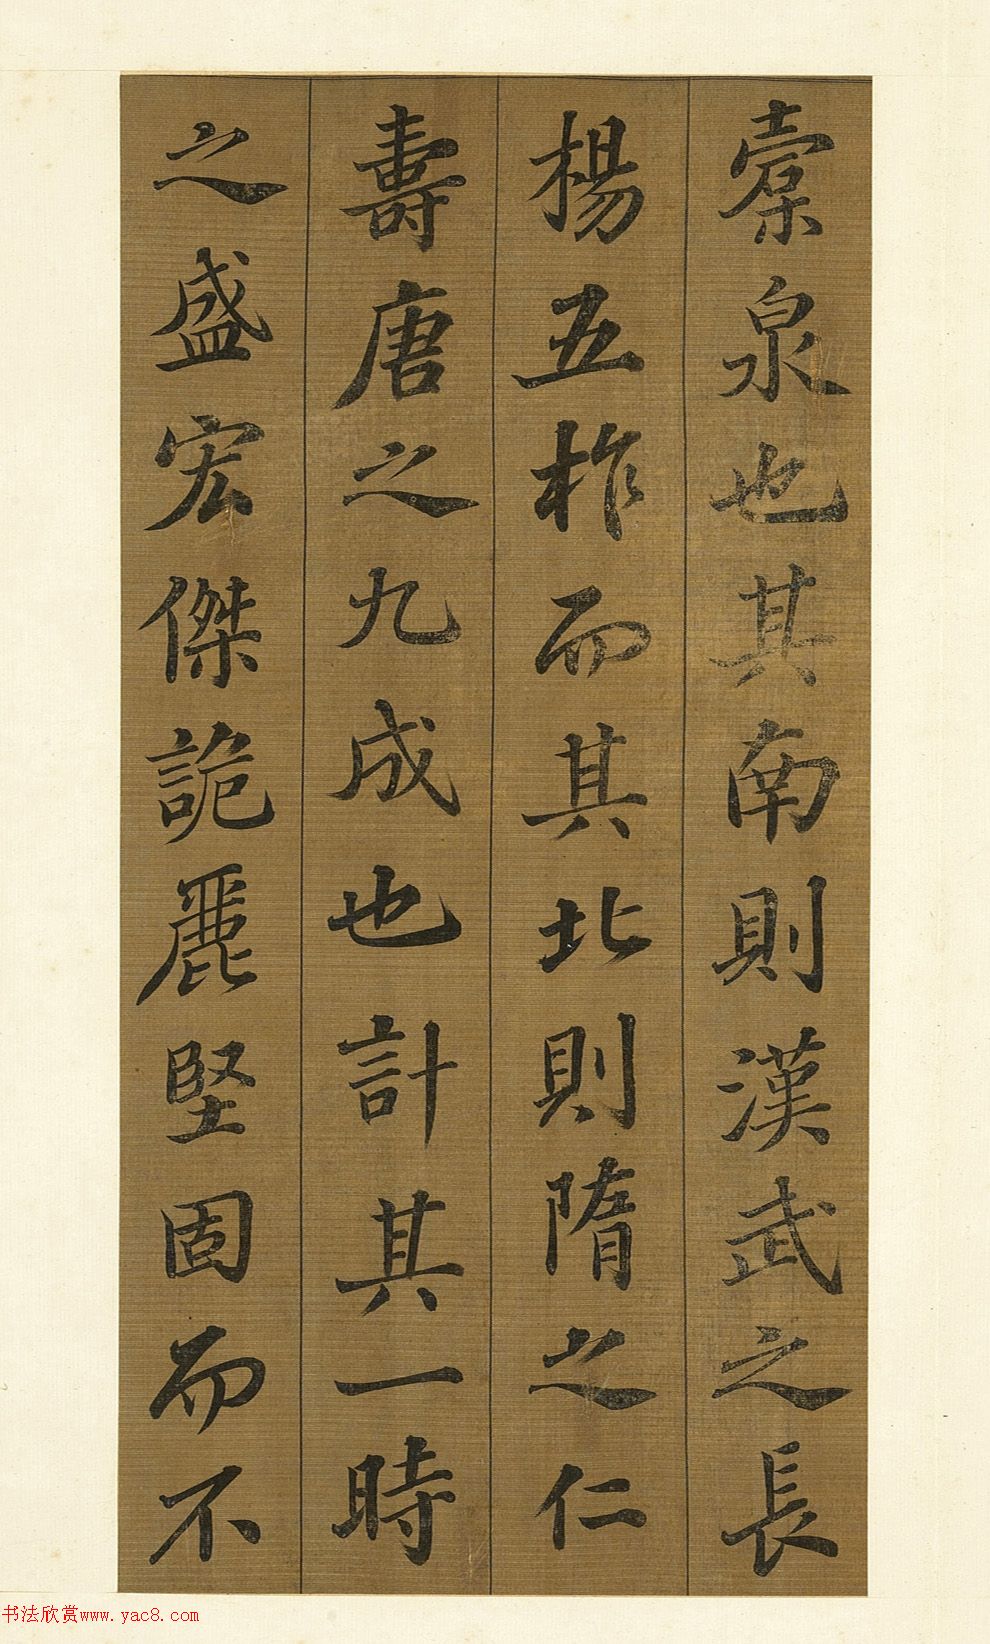 橐泉也其南則漢武之長
楊五柞而其北則隋之仁
壽唐之九成也計其一時
之盛宏傑詭麗堅固而不
书法欣赏www.yac8.com